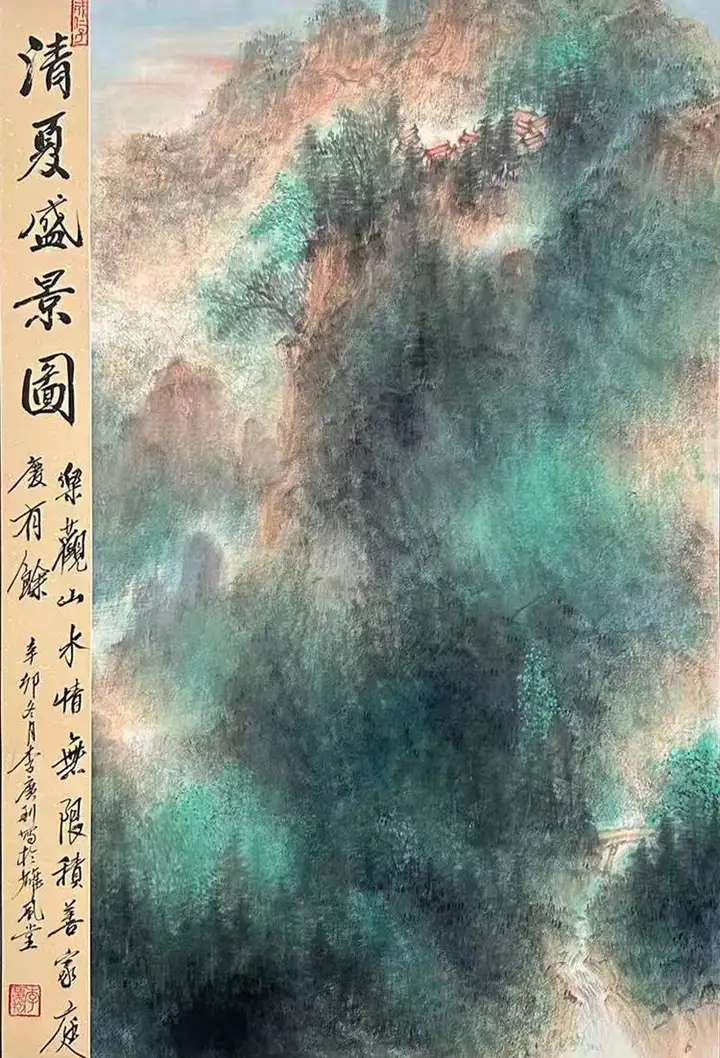 清夏盛景圖
樂觀山水情無限積善家庭
慶有餘
辛卯冬月李廣利寫於雄風堂